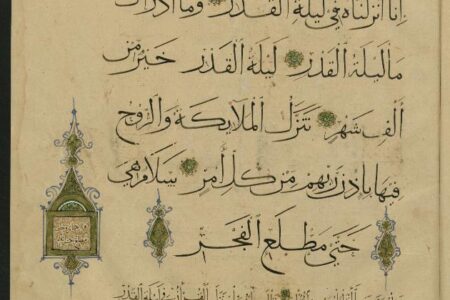 انا انزلناه في ليلة القدر وما ادراك
ما ليلة القدر ليلة القدر خير من
الف شهر تنزل الملايكة والروح
فيها باذن ربهم من كل امر سلام هي
حتى مطلع الفجر